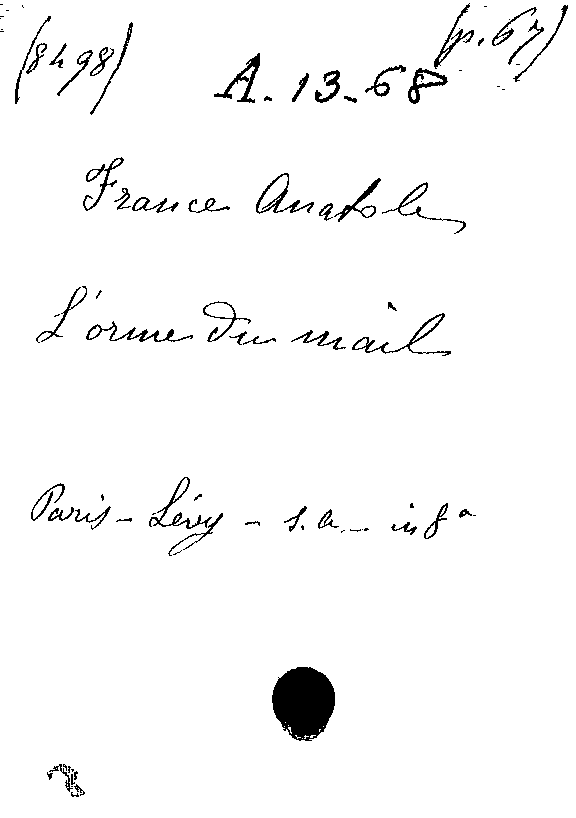 (8498) A. 13-68 (p. 67)
France Anatole
L'orme du mail
Paris - Lévy - s. a. - in 8°